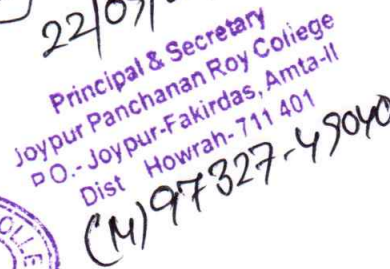 22/07/
Principal & Secretary
Joypur Panchanan Roy College
P.O.- Joypur-Fakirdas, Amta-II
Dist Howrah- 711 401
(M) 97327-49040
OLLE